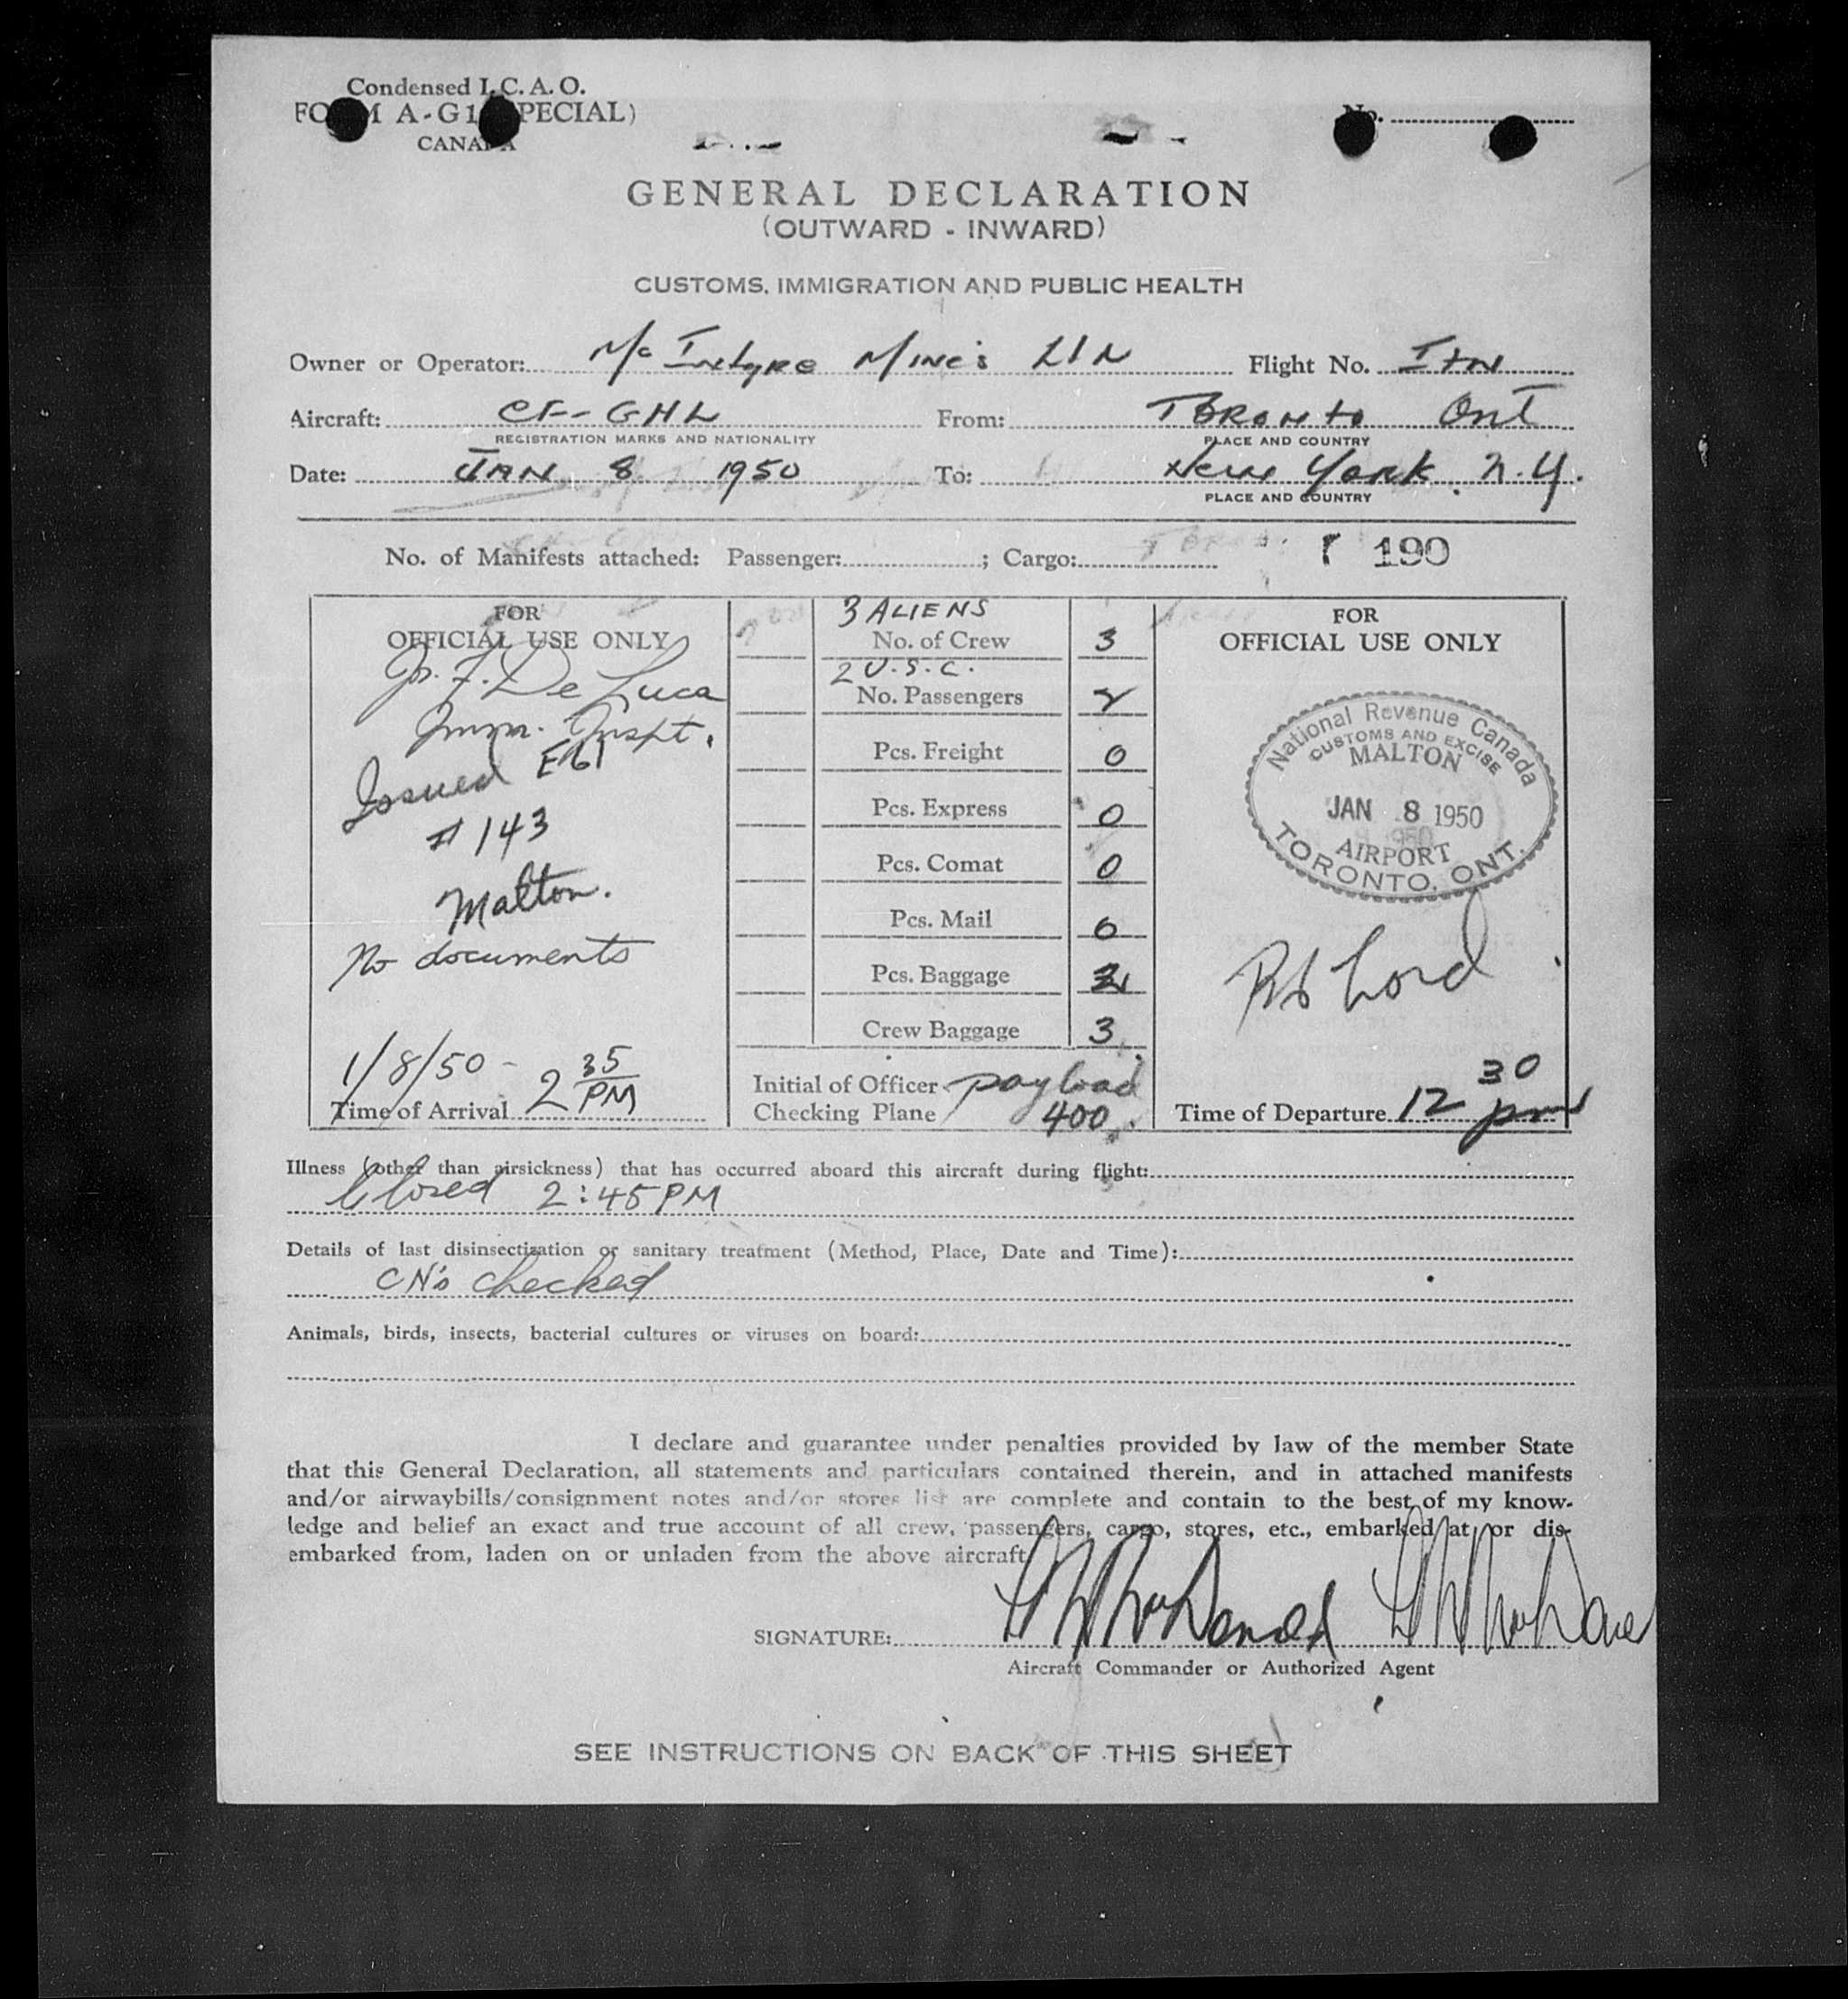 Condensed I.C.A.O.
FORM A-G1 (SPECIAL)
CANADA
No.
GENERAL DECLARATION
(OUTWARD - INWARD)
CUSTOMS, IMMIGRATION AND PUBLIC HEALTH
Owner or Operator: McIntyre Mines Flight No. ItN
Aircraft: CF-GHL From: Toronto Ont
REGISTRATION MARKS AND NATIONALITY PLACE AND COUNTRY
Date: JAN 8 1950 To: New York. N.Y.
PLACE AND COUNTRY
No. of Manifests attached: Passenger: ; Cargo: 190
FOR
OFFICIAL USE ONLY
F. De Luca
Imm. Inspt.
Issued E61
# 143
Malton.
No documents
1/8/50 -
Time of Arrival 2 35 PM
3 ALIENS
No. of Crew 3
2 U.S.C.
No. Passengers 2
Pcs. Freight 0
Pcs. Express 0
Pcs. Comat 0
Pcs. Mail 0
Pcs. Baggage 2
Crew Baggage 3
Initial of Officer payload
Checking Plane 400
FOR
OFFICIAL USE ONLY
National Revenue Canada
CUSTOMS AND EXCISE
MALTON
JAN 8 1950
AIRPORT
TORONTO, ONT.
Lord
Time of Departure 12 30 pm
Illness (other than airsickness) that has occurred aboard this aircraft during flight:
Closed 2:45 PM
Details of last disinsectization or sanitary treatment (Method, Place, Date and Time):
CN's checked
Animals, birds, insects, bacterial cultures or viruses on board:
I declare and guarantee under penalties provided by law of the member State
that this General Declaration, all statements and particulars contained therein, and in attached manifests
and/or airwaybills/consignment notes and/or stores list are complete and contain to the best of my know-
ledge and belief an exact and true account of all crew, passengers, cargo, stores, etc., embarked at, or dis-
embarked from, laden on or unladen from the above aircraft.
SIGNATURE:
Aircraft Commander or Authorized Agent
SEE INSTRUCTIONS ON BACK OF THIS SHEET